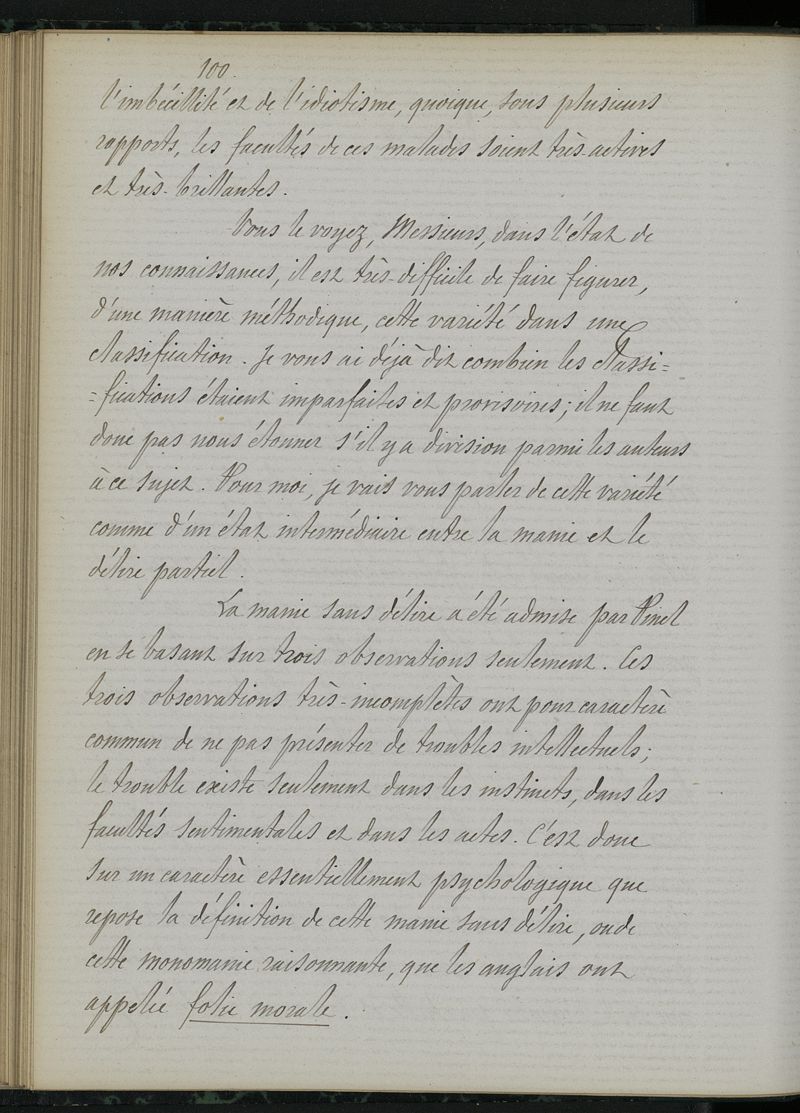 100.
l'imbécillité et de l'idiotisme, quoique, sous plusieurs
rapports, les facultés de ces malades soient très-actives
et très-brillantes.
Vous le voyez, Messieurs, dans l'état de
nos connaissances, il est très-difficile de faire figurer,
d'une manière méthodique, cette variété dans une
classification. Je vous ai déjà dit combien les classi=
=fications étaient imparfaites et provisoires; il ne faut
donc pas nous étonner s'il y a division parmi les auteurs
à ce sujet. Pour moi, je vais vous parler de cette variété
comme d'un état intermédiaire entre la manie et le
délire partiel.
La manie sans délire a été admise par Pinel
en se basant sur trois observations seulement. Ces
trois observations très-incomplètes ont pour caractère
commun de ne pas présenter de troubles intellectuels;
le trouble existe seulement dans les instincts, dans les
facultés sentimentales et dans les actes. C'est donc
sur un caractère essentiellement psychologique que
repose la définition de cette manie sans délire, ou de
cette monomanie raisonnante, que les anglais ont
appelée folie morale.